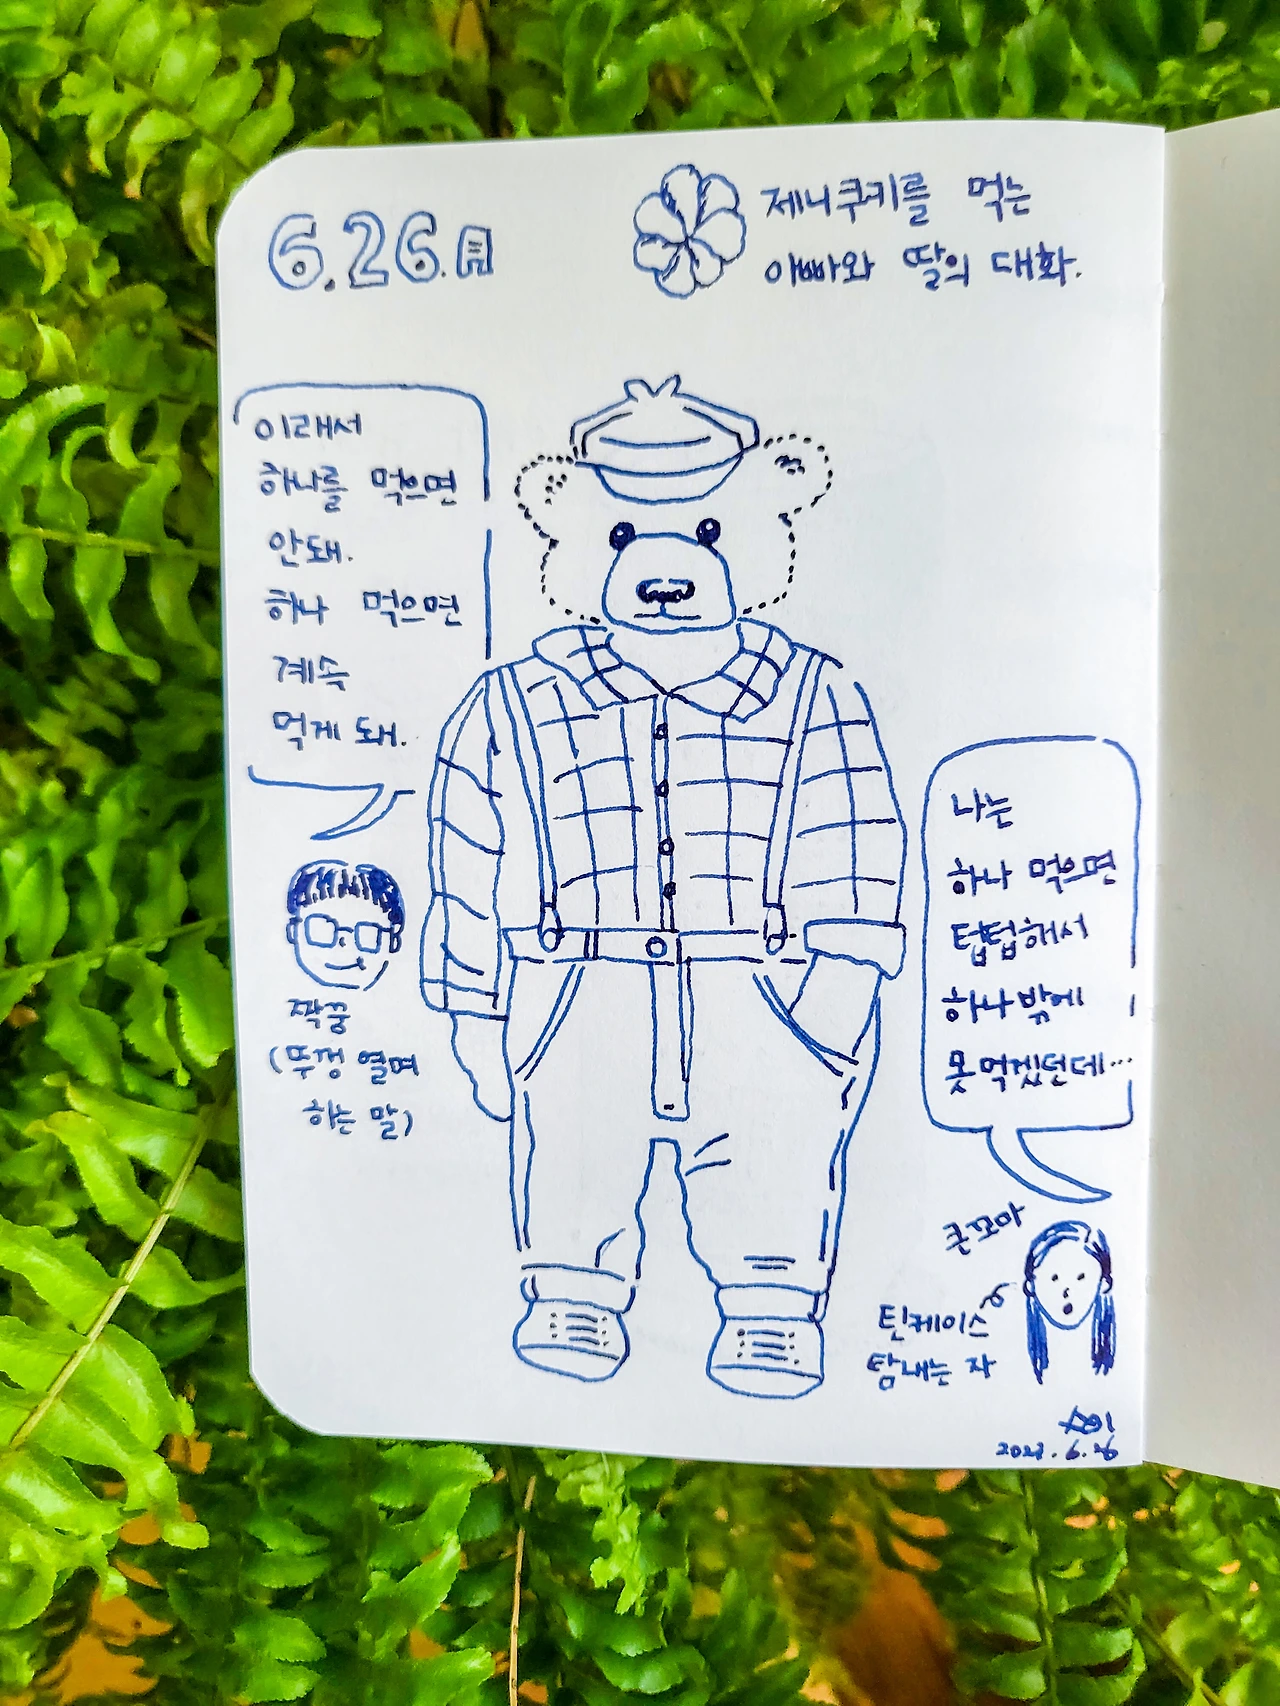 6.26.月
제니쿠키를 먹는
아빠와 딸의 대화.
이래서
하나를 먹으면
안돼.
하나 먹으면
계속
먹게 돼.
짝꿍
(뚜껑 열며
하는 말)
나는
하나 먹으면
텁텁해서
하나밖에
못먹겠던데...
큰꼬마
틴케이스
탐내는 자
2023.6.26